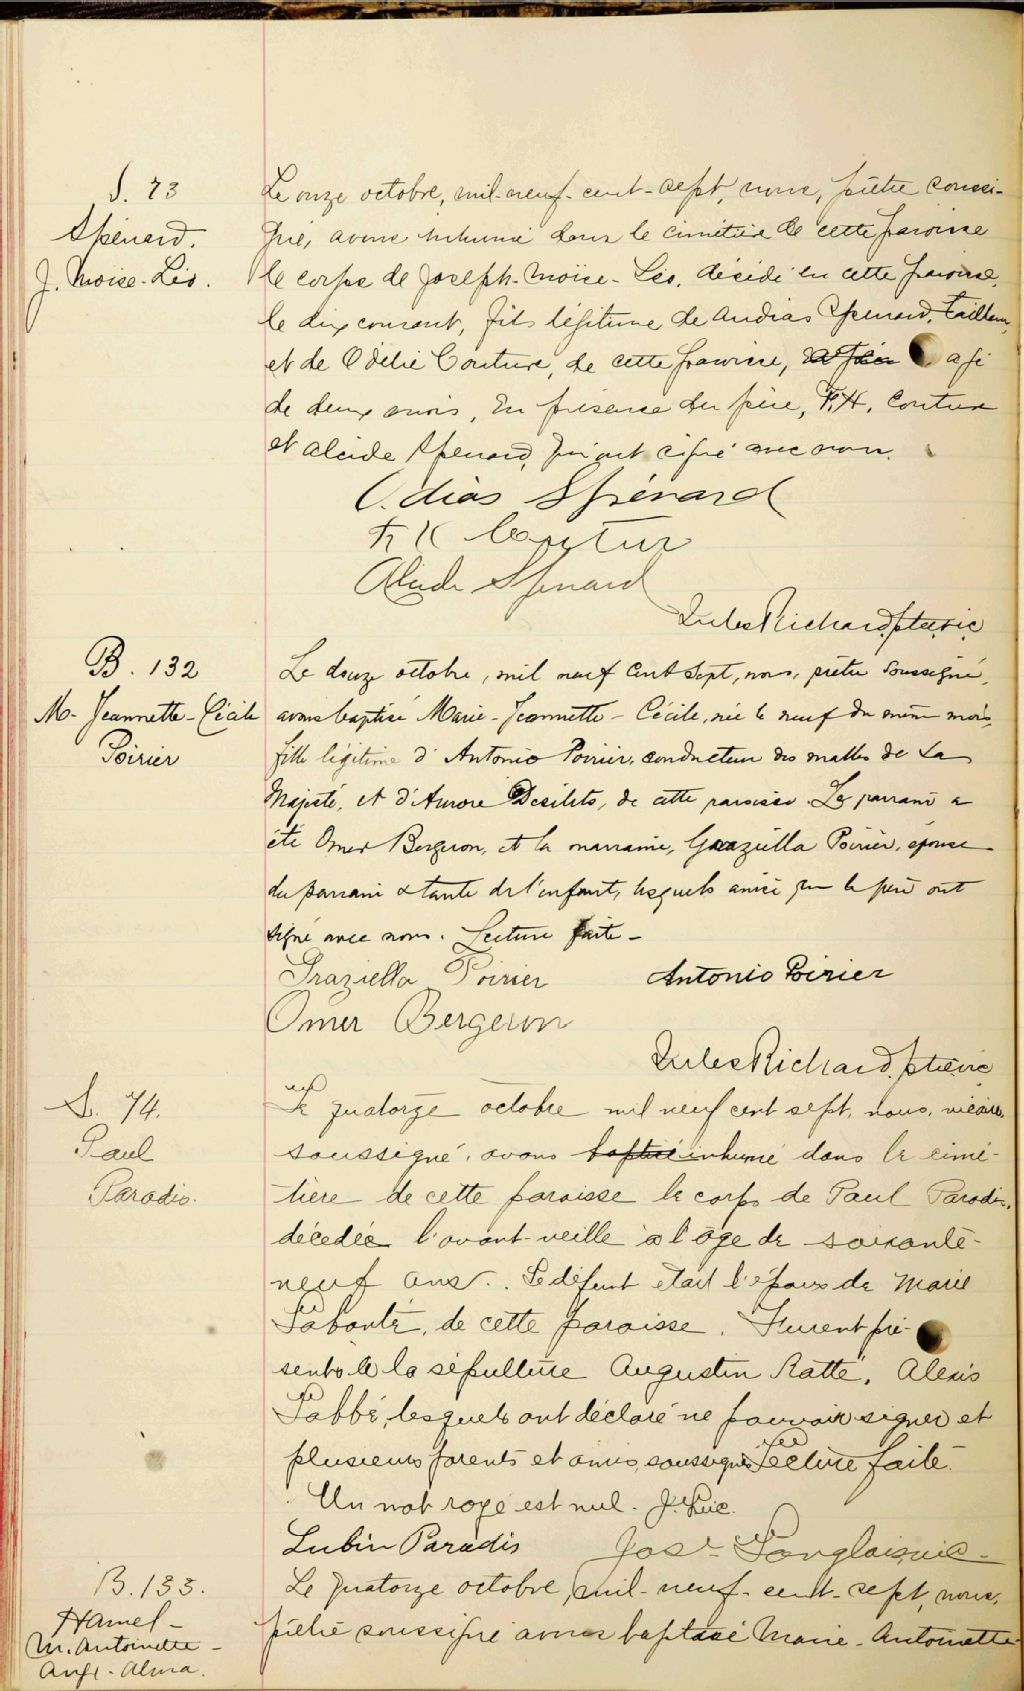 S. 73
Spénard.
J. Moïse-Léo.
Le onze octobre, mil-neuf-cent-sept, nous, prêtre soussi-
gné, avons inhumé dans le cimetière de cette paroisse
le corps de Joseph-Moïse-Léo, décédé en cette paroisse,
le dix courant, fils légitime de Audias Spénard, tailleur,
et de Odélie Couture, de cette paroisse, agé
de deux mois, En présence du père, F.X. Couture
et Alcide Spenard, qui ont signé avec nous.
O. dias Spénard
F X Coutur
Alcide Spenard
Jules Richard, ptre vic
B. 132
M-Jeannette-Cécile
Poirier
Le douze octobre, mil neuf cent sept, nous, prêtre soussigné,
avons baptisé Marie-Jeannette-Cécile, née le neuf du même mois,
fille légitime d'Antonio Poirier, conducteur des malles de Sa
Majesté, et d'Aurore Desilets, de cette paroisse. Le parrain a
été Omer Bergeron, et la marraine, Graziella Poirier, épouse
du parrain & tante de l'enfant, lesquels ainsi que le père ont
signé avec nous. Lecture faite-
Graziella Poirier
Antonio Poirier
Omer Bergeron
Jules Richard, ptre vic
S. 74.
Paul
Paradis.
Le quatorze octobre mil neuf cent sept, nous, vicaire
soussigné, avons baptisé inhumé dans le cime-
tière de cette paroisse le corps de Paul Paradis,
décédée l'avant-veille à l'âge de soixante-
neuf ans. Le défunt était l'époux de Marie
Labonté, de cette paroisse. Furent pré-
sents à la sépulture Augustin Ratté, Alexis
Labbé, lesquels ont déclaré ne pouvoir signer et
plusieurs parents et amis soussignés Lecture faite.
Un mot rayé est nul. J. L. vic.
Lubin Paradis
Jos. Langlais vic-
B. 133.
Hamel-
M. Antoinette-
Ange-Alma.
Le quatorze octobre, mil-neuf-cent-sept, nous,
prêtre soussigné avons baptisé Marie-Antoinette-